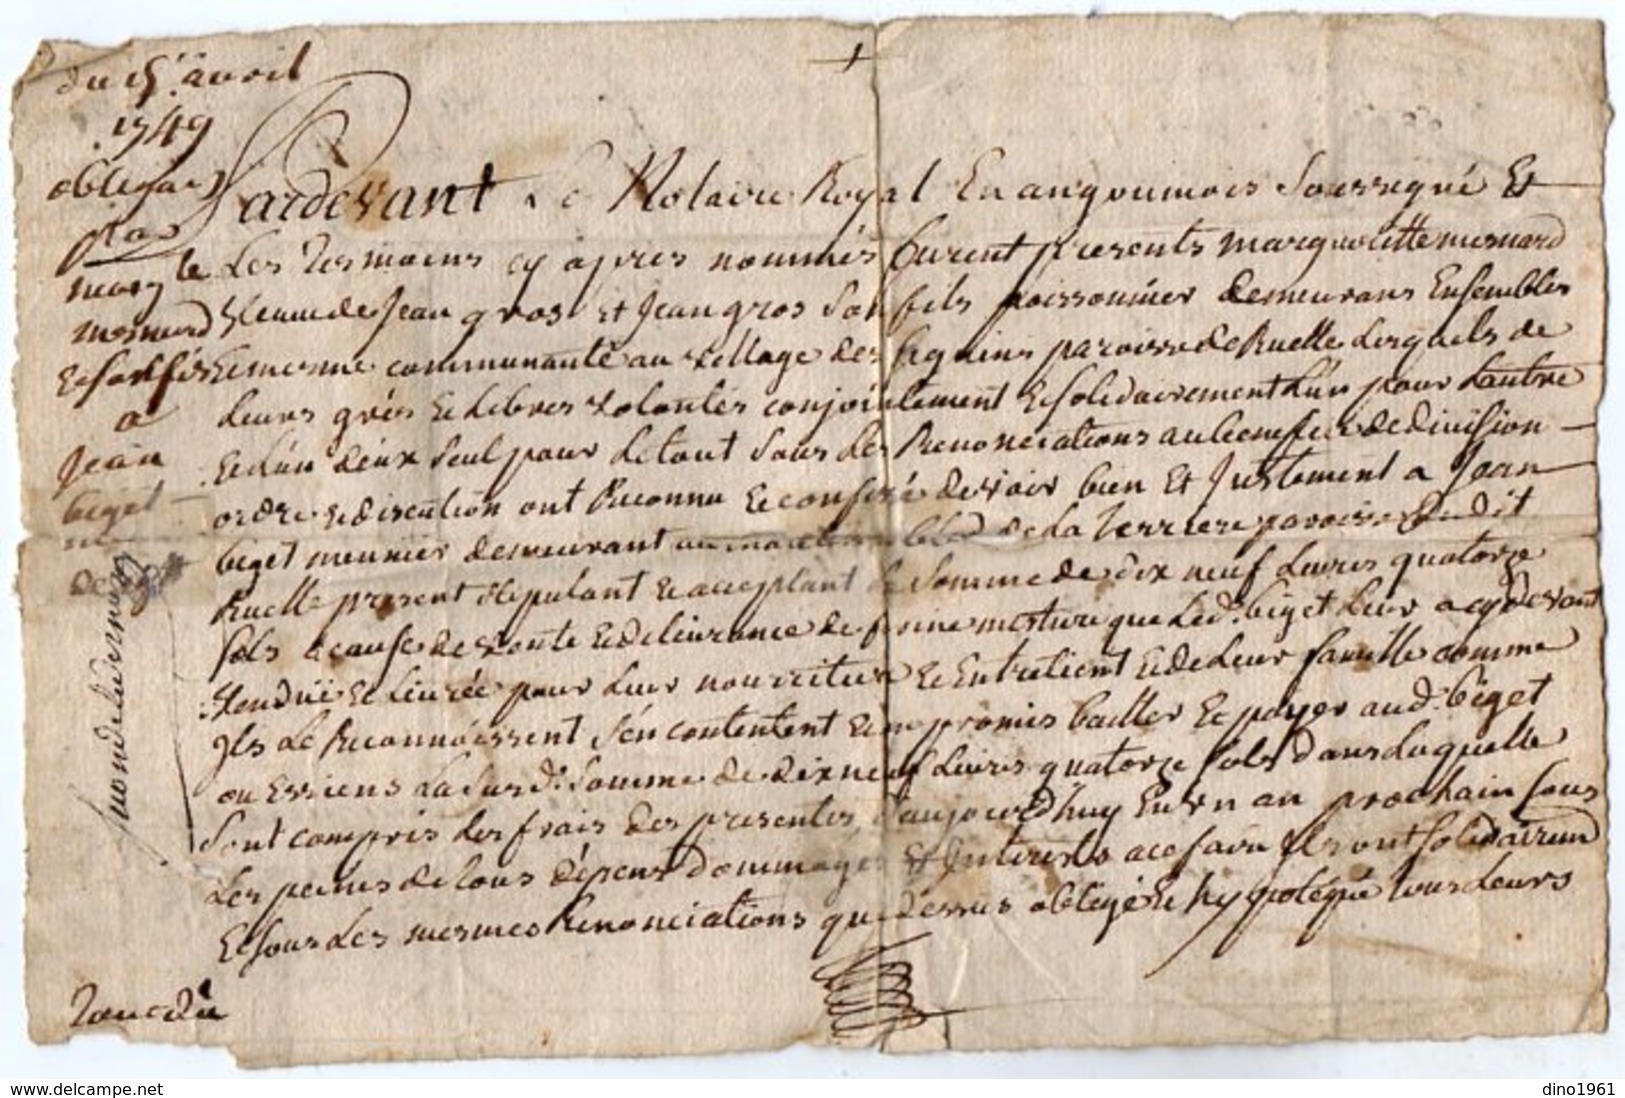 du 15 avril
1749
obligaõn
par
marg.te
mesnard
& son fils
a
Jean
biget
Pardevant Le Notaire Royal En angoumois Soussigné Et
Les Tesmoins cy apres nommés furent presents marguoitte mesnard
veuve de Jean gros Et Jean gros Son fils poissonnier demeurans Ensembles
& mesme communauté au village des seguins paroisse de Ruelle Lesquels de
Leurs grés & Libres volontés conjointement & solidairement L'un pour Lautre
& d'un deux Seul pour Le tout Sous Les Renonciations au beneffice de division
ordre & discution ont Reconnu & confessé devoir bien Et Justement a Jean
biget meunier demeurant au de La Terriere paroisse dudit
Ruelle present stipulant & acceptant La Somme de dix neuf Livres quatorze
sols a cause de vente & delivrance de farine mesture que Led. biget Leur a cy devant
vendüe & Livrée pour Leur nourriture & Entretient & de Leur famille comme
Ils Le Reconnoissent s'en contentent & on promis bailler & payer aud. biget
ou Essiens La Susd. Somme de dix neuf Livres quatorze sols dans Laquelle
Sont compris Les frais des presentes, d'aujourdhuy En un an prochain sous
Les peines de tous dépens Dommages Et Interests a ce faire Ils ont solidairem.
& sous Les mesmes Renonciations que dessus obligé & hypotéqué tous Leurs
dino1961
www.delcampe.net